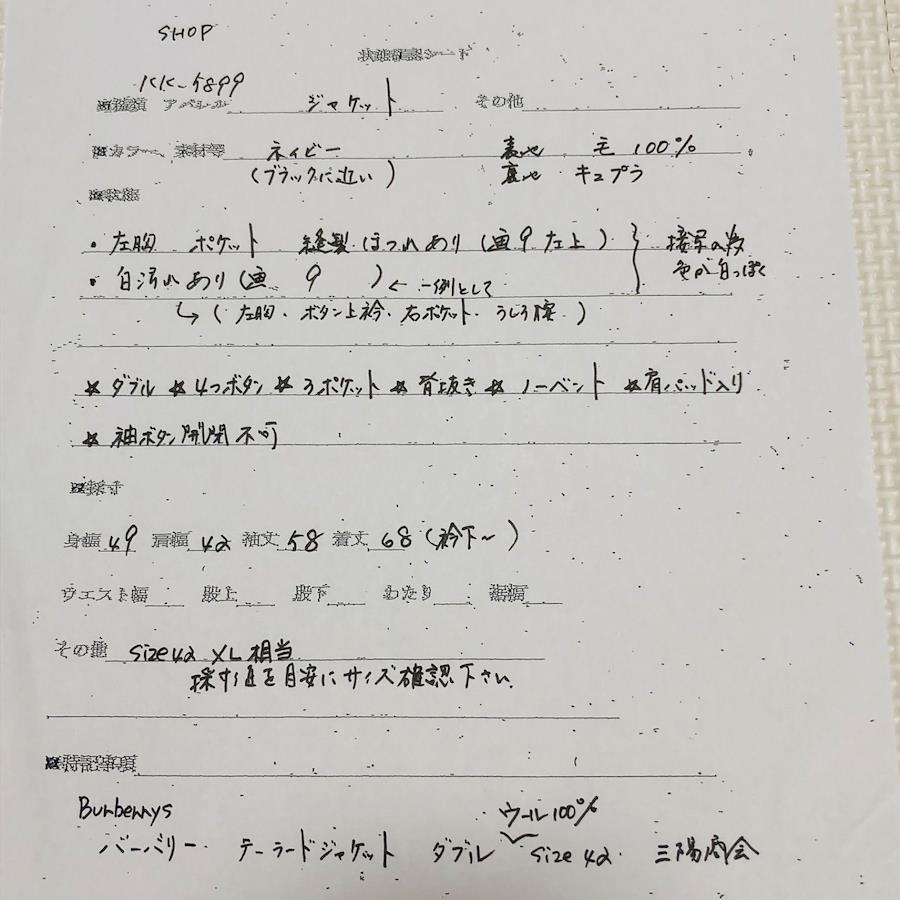 SHOP
状態確認シート
KK-5899
※種類 アパレル ジャケット その他
※カラー、素材等 ネイビー 表地 毛 100%
(ブラックに近い) 裏地 キュプラ
※状態
・左胸 ポケット 縫製 ほつれあり (画9 左上) 接写の為
・白汚れあり (画 9 ) ← 一例として 色が白っぽく
↳ (左胸・ボタン上衿・右ポケット・うしろ腰 )
☆ダブル ☆4つボタン ☆3ポケット ☆背抜き ☆ノーベント ☆肩パッド入り
☆袖ボタン開閉不可
※採寸
身幅49 肩幅42 袖丈58 着丈68 (衿下~)
ウエスト幅 股上 股下 わたり 裾幅
その他 size42 XL相当
採寸値を目安にサイズ確認下さい.
※特記事項
Burberrys ウール100%
バーバリー テーラードジャケット ダブル size 42. 三陽商会